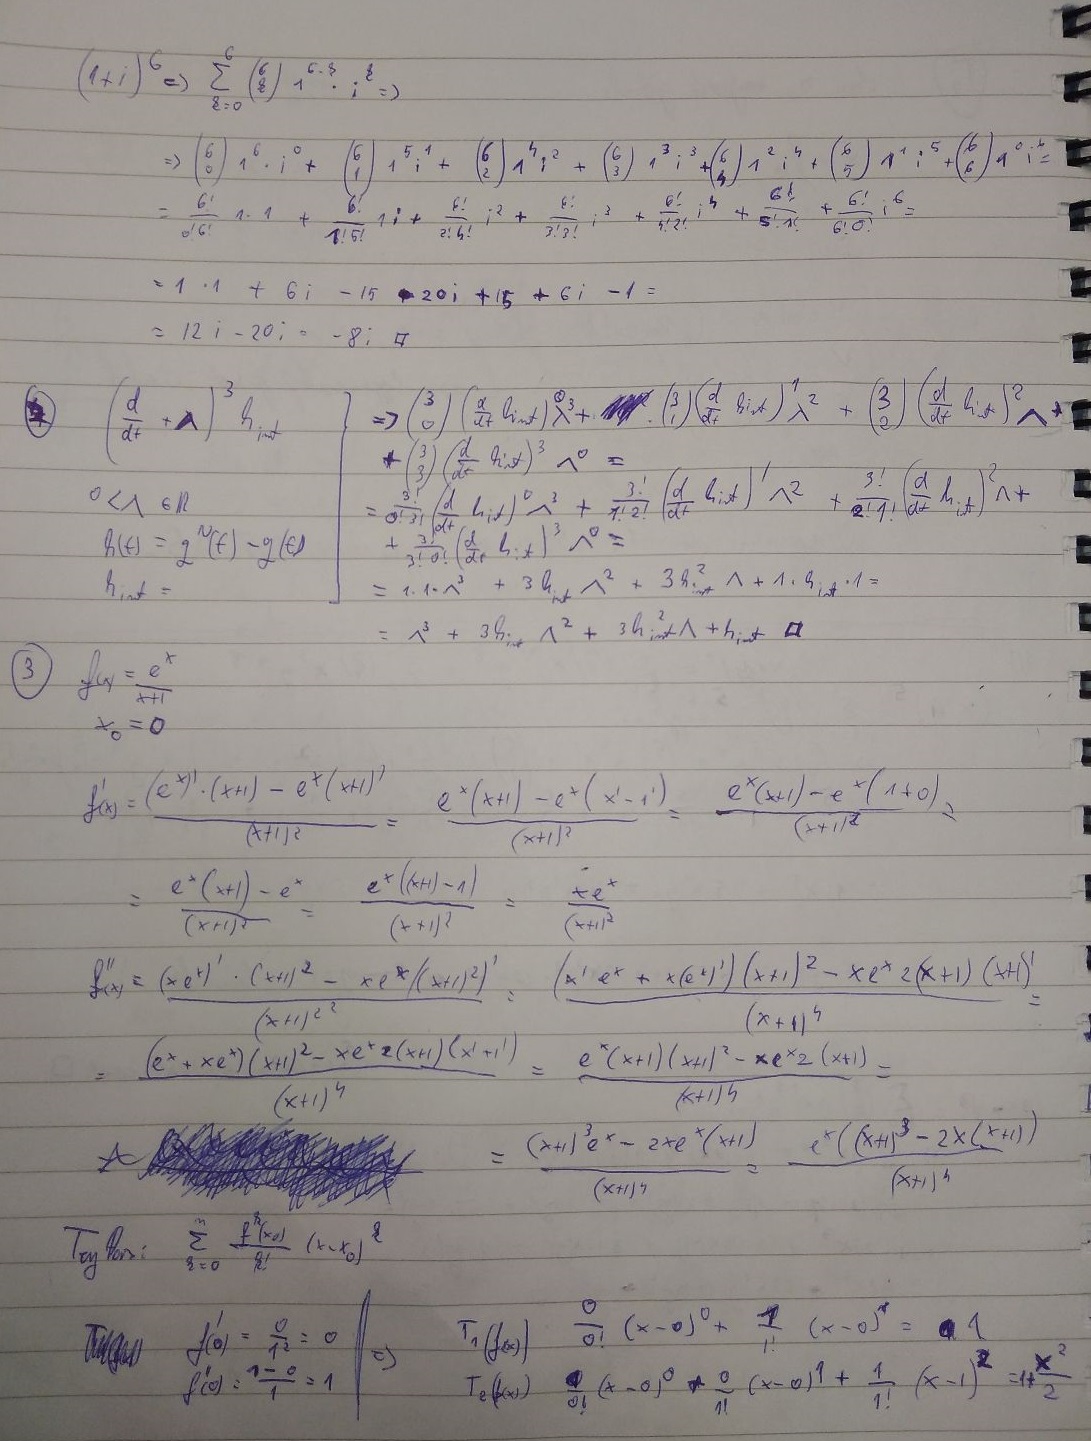 (1+i)^6 => Σ_{k=0}^{6} (6 k) 1^{6-k} · i^k =>
=> (6 0) 1^6 · i^0 + (6 1) 1^5 i^1 + (6 2) 1^4 i^2 + (6 3) 1^3 i^3 + (6 4) 1^2 i^4 + (6 5) 1^1 i^5 + (6 6) 1^0 i^6 =
= 6!/0!6! 1·1 + 6!/1!5! 1i + 6!/2!4! i^2 + 6!/3!3! i^3 + 6!/4!2! i^4 + 6!/5!1! + 6!/6!0! i^6 =
= 1·1 + 6i - 15 - 20i + 15 + 6i - 1 =
= 12i - 20i = -8i □
(d/dt + λ)^3 h_int
0 < λ ∈ ℝ
h(t) = g^~(t) - g(t)
h_int =
=> (3 0) (d/dt h_int)^0 λ^3 + (3 1) (d/dt h_int)^1 λ^2 + (3 2) (d/dt h_int)^2 λ +
+ (3 3) (d/dt h_int)^3 λ^0 =
= 3!/0!3! (d/dt h_int)^0 λ^3 + 3!/1!2! (d/dt h_int)^1 λ^2 + 3!/2!1! (d/dt h_int)^2 λ +
+ 3!/3!0! (d/dt h_int)^3 λ^0 =
= 1·1·λ^3 + 3h_int λ^2 + 3h_int^2 λ + 1·h_int·1 =
= λ^3 + 3h_int λ^2 + 3h_int^2 λ + h_int □
3 f(x) = e^x/x+1
x_0 = 0
f'(x) = (e^x)'·(x+1) - e^x(x+1)'/(x+1)^2 = e^x(x+1) - e^x(x'-1')/(x+1)^2 = e^x(x+1) - e^x(1+0)/(x+1)^2 =
= e^x(x+1) - e^x/(x+1)^2 = e^x((x+1)-1)/(x+1)^2 = xe^x/(x+1)^2
f''(x) = (xe^x)'·(x+1)^2 - xe^x((x+1)^2)'/(x+1)^{2^2} = (x'e^x + x(e^x)')(x+1)^2 - xe^x 2(x+1)(x+1)'/(x+1)^4 =
= (e^x + xe^x)(x+1)^2 - xe^x 2(x+1)(x'+1')/(x+1)^4 = e^x(x+1)(x+1)^2 - xe^x 2(x+1)/(x+1)^4 =
= (x+1)^3 e^x - 2xe^x(x+1)/(x+1)^4 = e^x((x+1)^3 - 2x(x+1))/(x+1)^4
Taylor: Σ_{k=0}^{n} f^k(x_0)/k! (x-x_0)^k
f'(0) = 0/1^2 = 0
f''(0) = 1-0/1 = 1
=> T_1(f(x)) 0/0! (x-0)^0 + 1/1! (x-0)^1 = 1
T_2(f(x)) 1/0! (x-0)^0 + 0/1! (x-0)^1 + 1/1! (x-1)^2 = 1+x^2/2